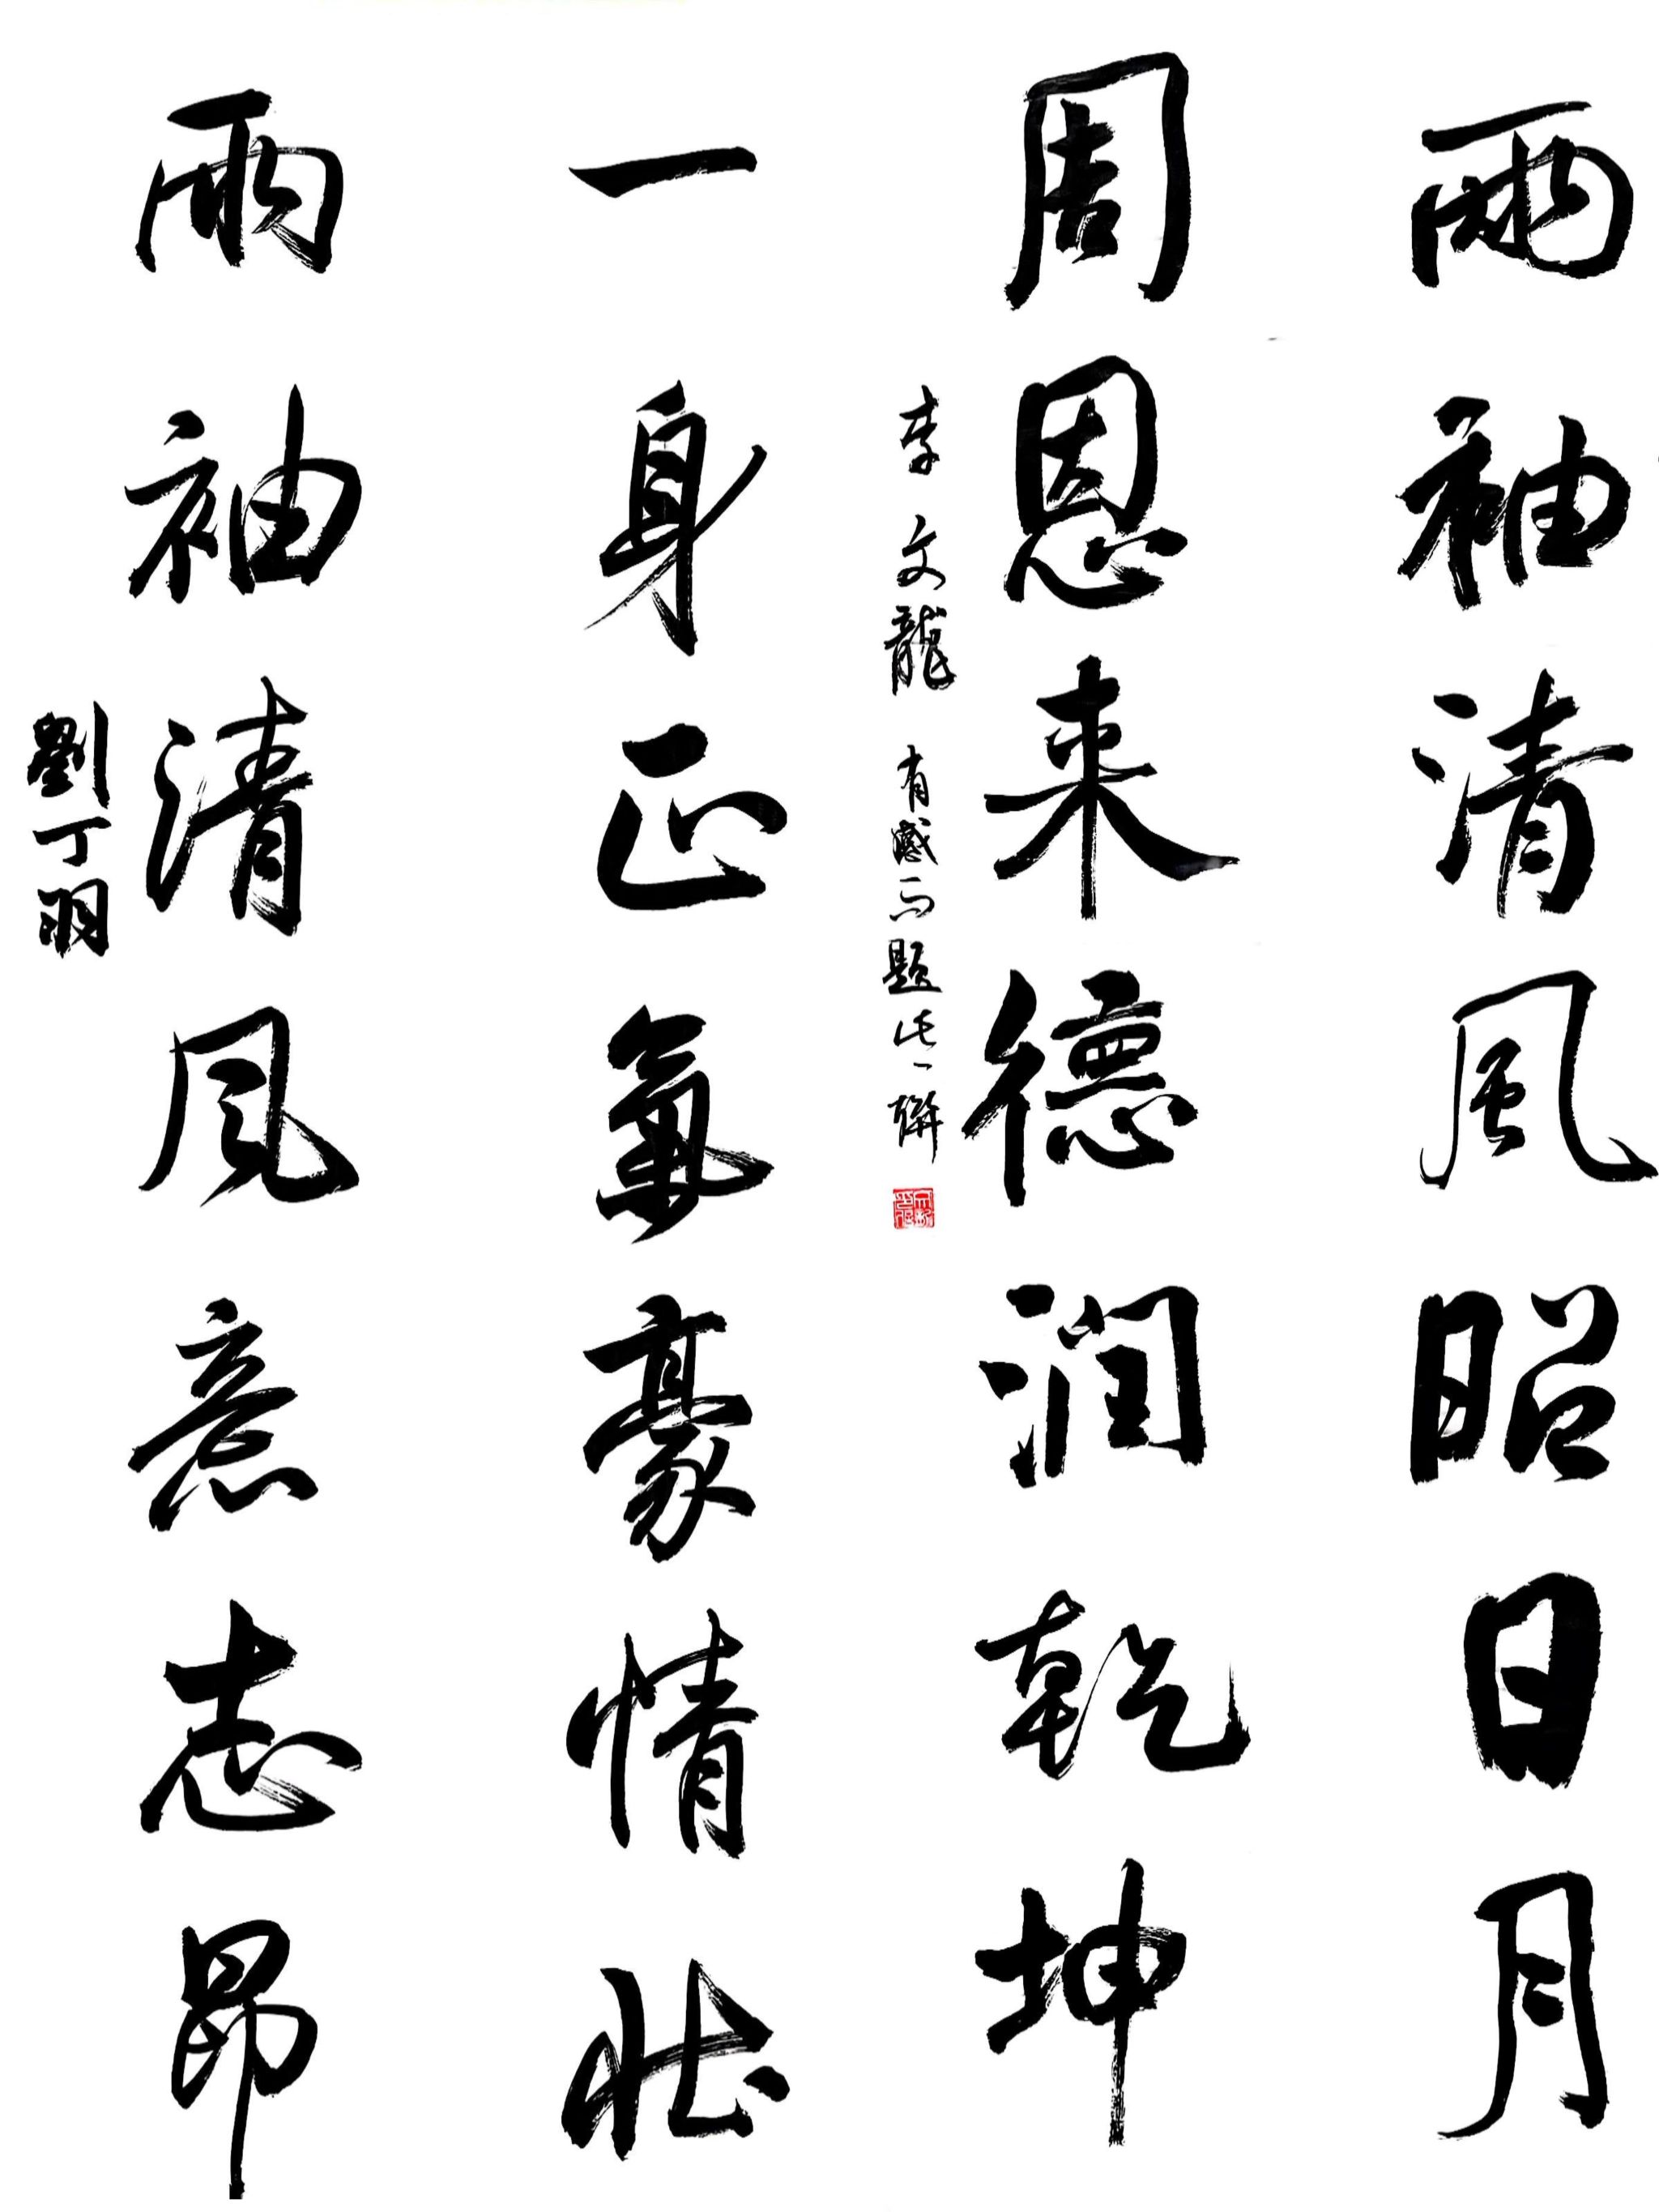 兩袖清風昭日月
周恩来德润乾坤
李文龍 有感而题此一聯
一身正氣豪情壮
两袖清风意志昂
劉丁羽